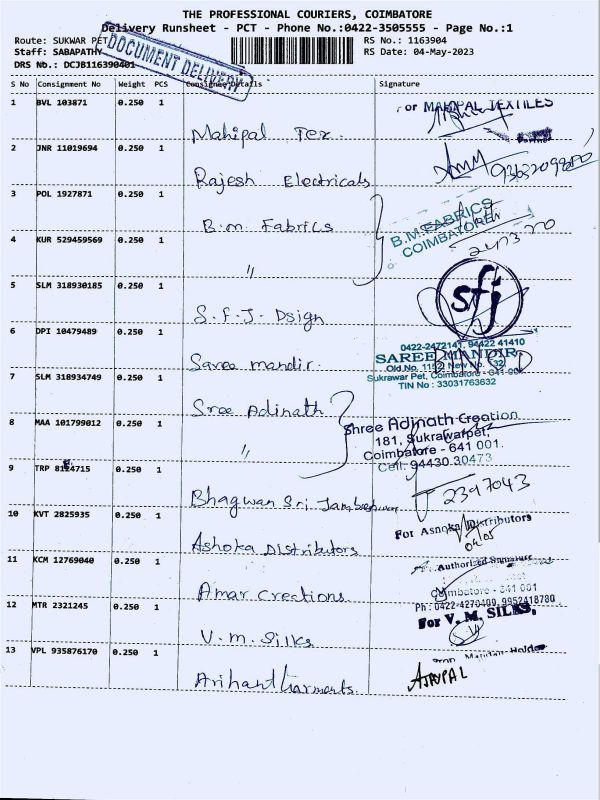 THE PROFESSIONAL COURIERS, COIMBATORE
Delivery Runsheet - PCT - Phone No.:0422-3505555 - Page No.:1
Route: SUKWAR PET
RS No.: 1163904
Staff: SABAPATHY
RS Date: 04-May-2023
DRS No.: DCJB116390401
DOCUMENT DELIVERY
S No Consignment No Weight PCS Consignee Details Signature
1 BVL 103871 0.250 1
Mahipal Tex.
For MAHIPAL TEXTILES
Partner
2 JNR 11019694 0.250 1
Rajesh Electricals
3 POL 1927871 0.250 1
B.m Fabrics
B.M. FABRICS
COIMBATORE
4 KUR 529459569 0.250 1
"
5 SLM 318930185 0.250 1
S.F.J. Dsign
sfj
6 DPI 10479489 0.250 1
Saree mandir.
0422-2472141, 94422 41410
SAREE MANDIR
Old.No. 1152 New No.
Sukrawar Pet, Coimbatore - 641 001
TIN No : 33031763632
7 SLM 318934749 0.250 1
Sree Adinath
8 MAA 101799012 0.250 1
"
Shree Adinath Creation
181, Sukrawarpet,
Coimbatore - 641 001.
Cell: 94430 30473
9 TRP 8124715 0.250 1
Bhagwan Sri
2397043
10 KVT 2825935 0.250 1
Ashoka Distributors
For Ashoka Distributors
Authorized Signature
11 KCM 12769040 0.250 1
Amar Creations
Coimbatore - 641 001
Ph : 0422-4270400, 9952418780
12 MTR 2321245 0.250 1
V.m. Silks
For V. M. SILKS,
13 VPL 935876170 0.250 1
Arihant Garments.
AJAYPAL